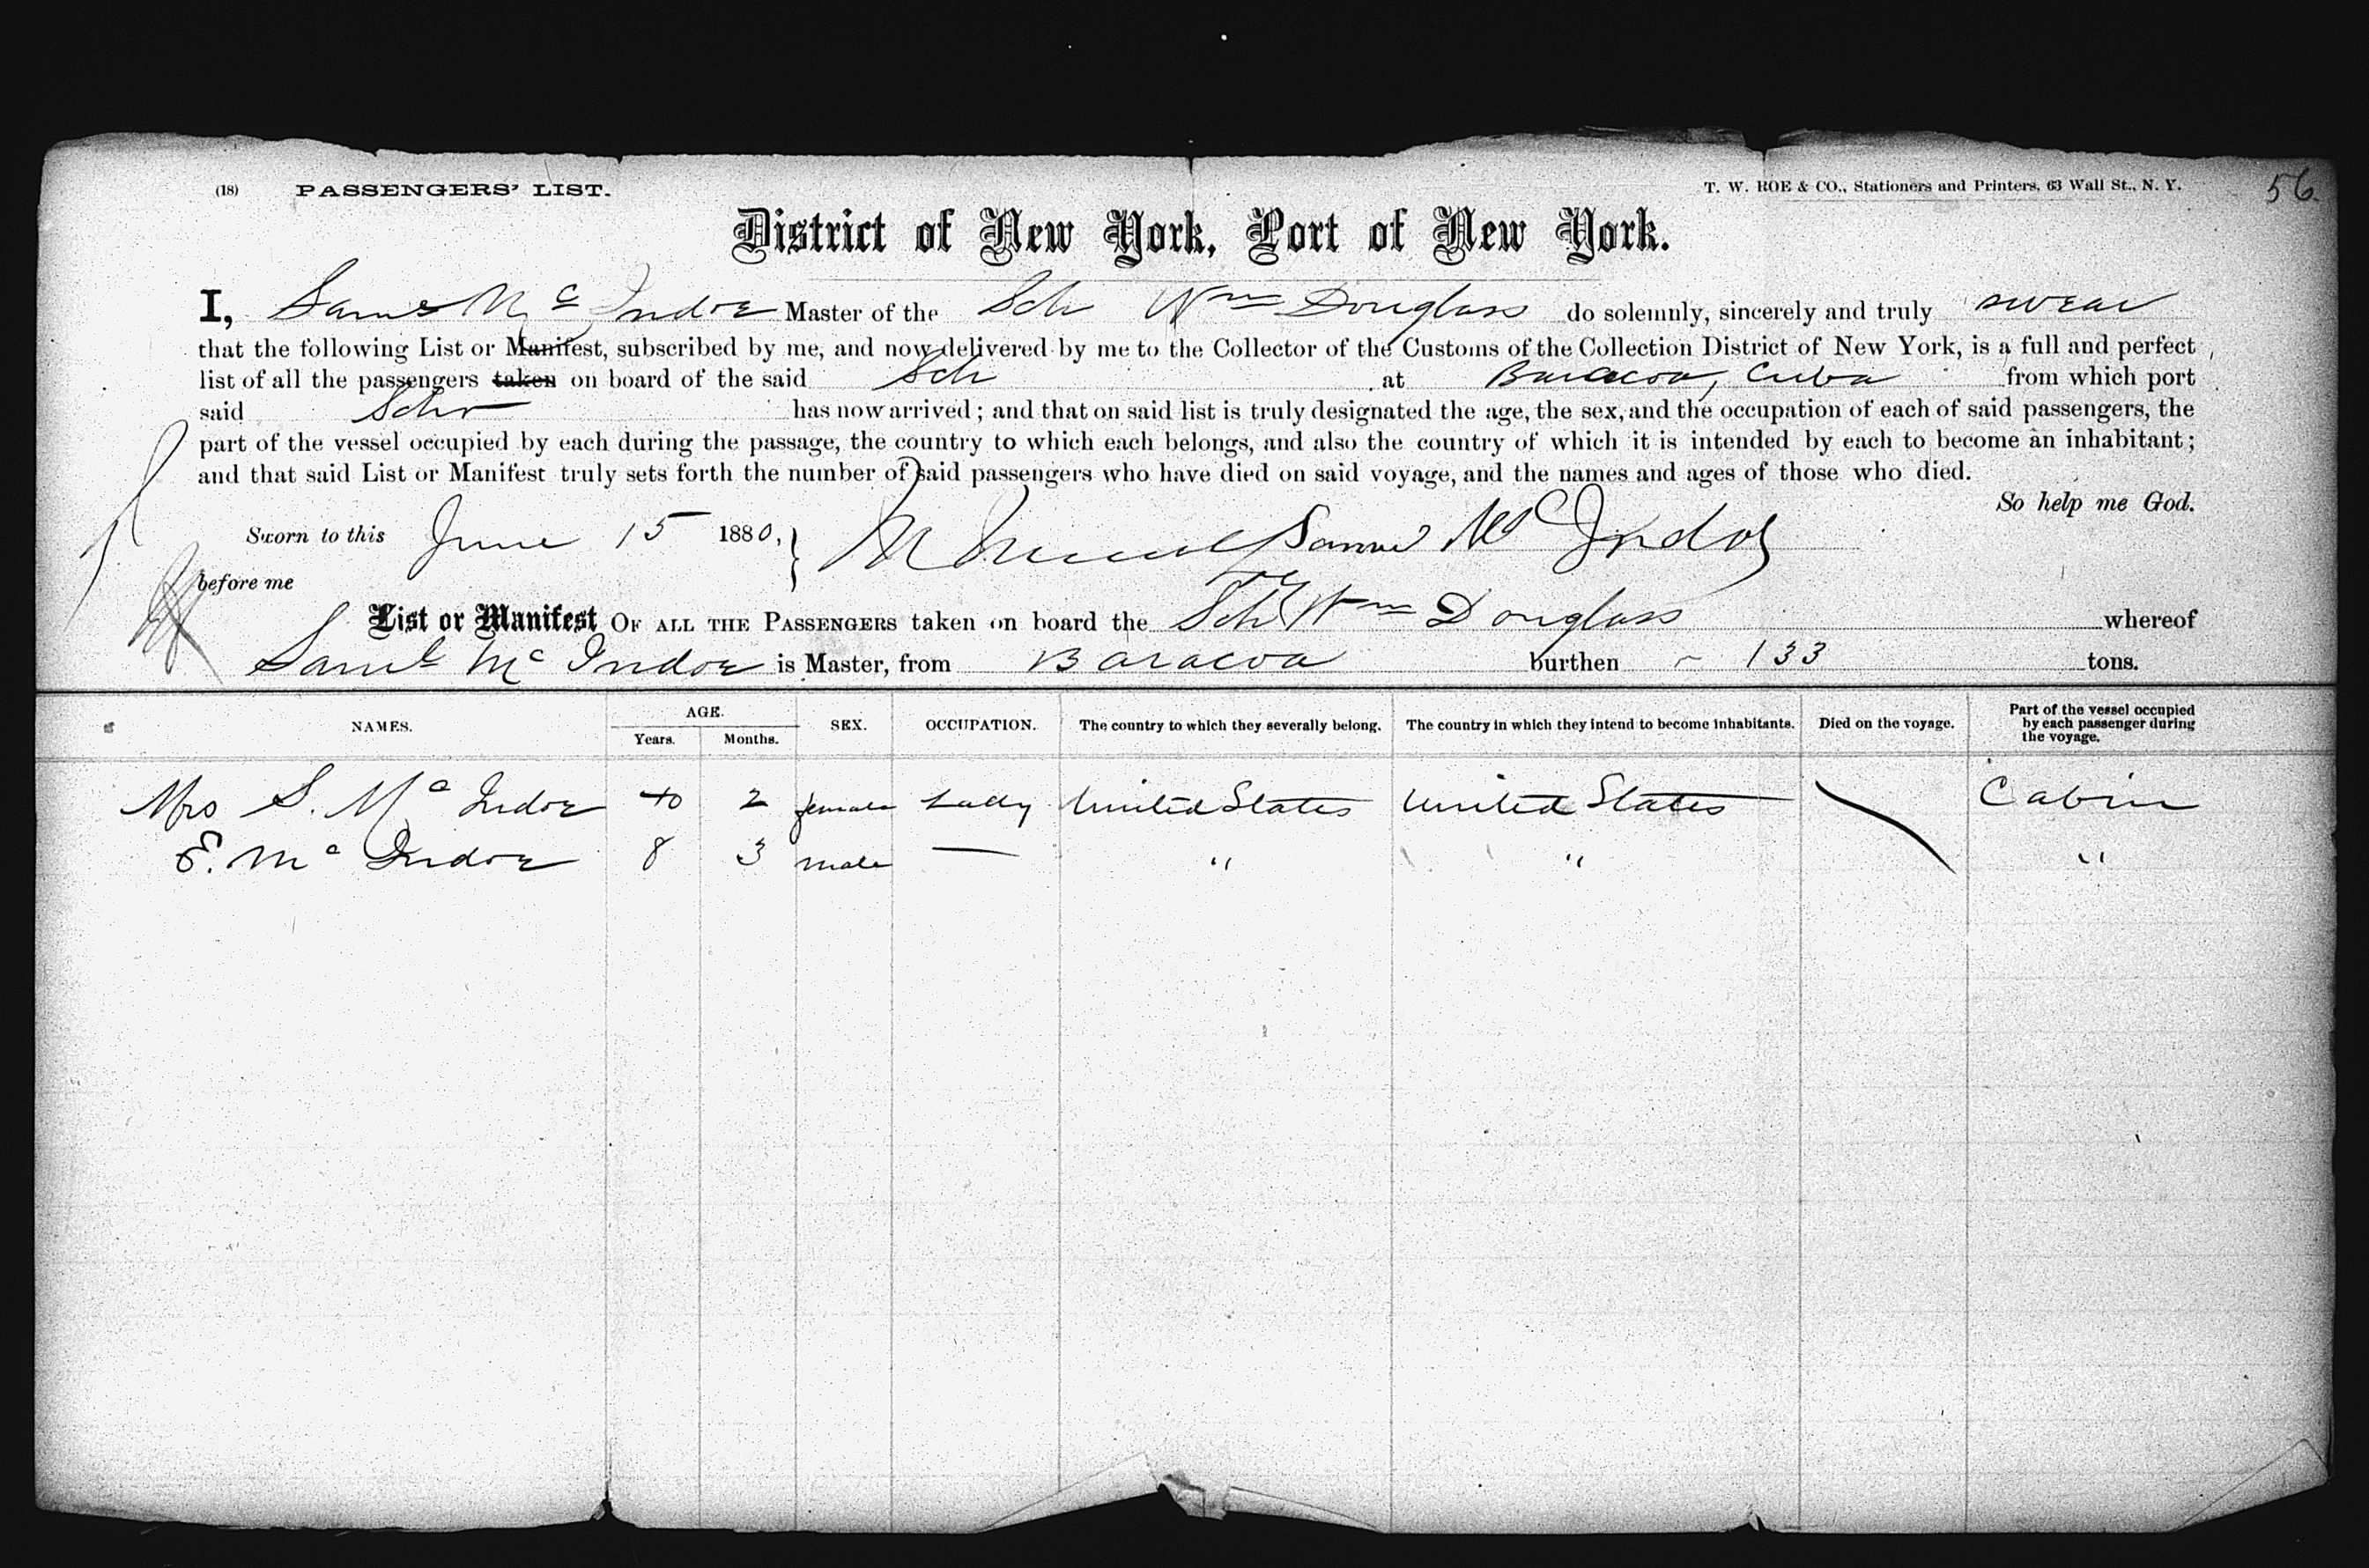 (18) PASSENGERS' LIST. T. W. ROE & CO., Stationers and Printers, 63 Wall St., N. Y. 56
District of New York, Port of New York.
I, Saml Mc Indoe Master of the Sch Wm Douglass do solemnly, sincerely and truly swear
that the following List or Manifest, subscribed by me, and now delivered by me to the Collector of the Customs of the Collection District of New York, is a full and perfect
list of all the passengers taken on board of the said Sch at Baracoa, Cuba from which port
said Schr has now arrived; and that on said list is truly designated the age, the sex, and the occupation of each of said passengers, the
part of the vessel occupied by each during the passage, the country to which each belongs, and also the country of which it is intended by each to become an inhabitant;
and that said List or Manifest truly sets forth the number of said passengers who have died on said voyage, and the names and ages of those who died.
So help me God.
Sworn to this June 15 1880, Samuel Mc Indoe
before me
List or Manifest OF ALL THE PASSENGERS taken on board the Schr Wm Douglass whereof
Saml Mc Indoe is Master, from Baracoa burthen 133 tons.
NAMES. AGE. Years. Months. SEX. OCCUPATION. The country to which they severally belong. The country in which they intend to become inhabitants. Died on the voyage. Part of the vessel occupied by each passenger during the voyage.
Mrs S. Mc Indoe 40 2 female Lady United States United States Cabin
E. Mc Indoe 8 3 male — " " "